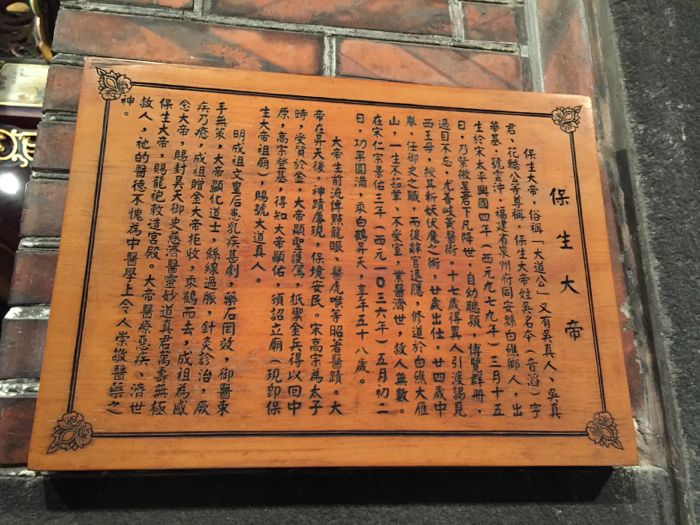 保生大帝
保生大帝，俗稱「大道公」又有吳真人、吳真
君、花轎公等尊稱。保生大帝姓吳名夲（音滔）字
華基，號雲沖，福建省泉州府同安縣白礁鄉人，出
生於宋太平興國四年（西元九七九年）三月十五
日，乃紫微星君下凡降世，自幼聰穎，博覽群冊，
過目不忘，尤善岐黃醫術。十七歲得異人引渡謁見
西王母，授其斬妖伏魔之術，廿歲出仕，廿四歲中
舉，任御史之職，而後辭官退隱，修道於白礁大雁
山，一生不茹葷，不受室，業醫濟世，救人無數。
在宋仁宗景佑三年（西元一０三六年）五月初二
日，功果圓滿，乘白鶴昇天，享年五十八歲。
大帝生前流傳點龍眼、醫虎喉等昭著醫蹟。大
帝在昇天後，神蹟屢現，保境安民。宋高宗為太子
時，受質於金，大帝顯聖護駕，抵禦金兵得以回中
原，高宗登基，得知大帝顯佑，頒詔立廟（現即保
生大帝祖廟），賜號大道真人。
明成祖文皇后患乳疾甚劇，藥石罔效，御醫束
手無策，大帝顯化道士，絲線過脈，針灸診治，厥
疾乃癒，成祖贈金大帝拒收，乘鶴而去，成祖為感
念大帝，賜封昊天御史慈濟醫靈妙道真君萬壽無極
保生大帝，賜龍袍敕造宮殿。大帝醫療惡疾、濟世
救人，祂的醫德不愧為中醫學上令人崇敬醫藥之
神。